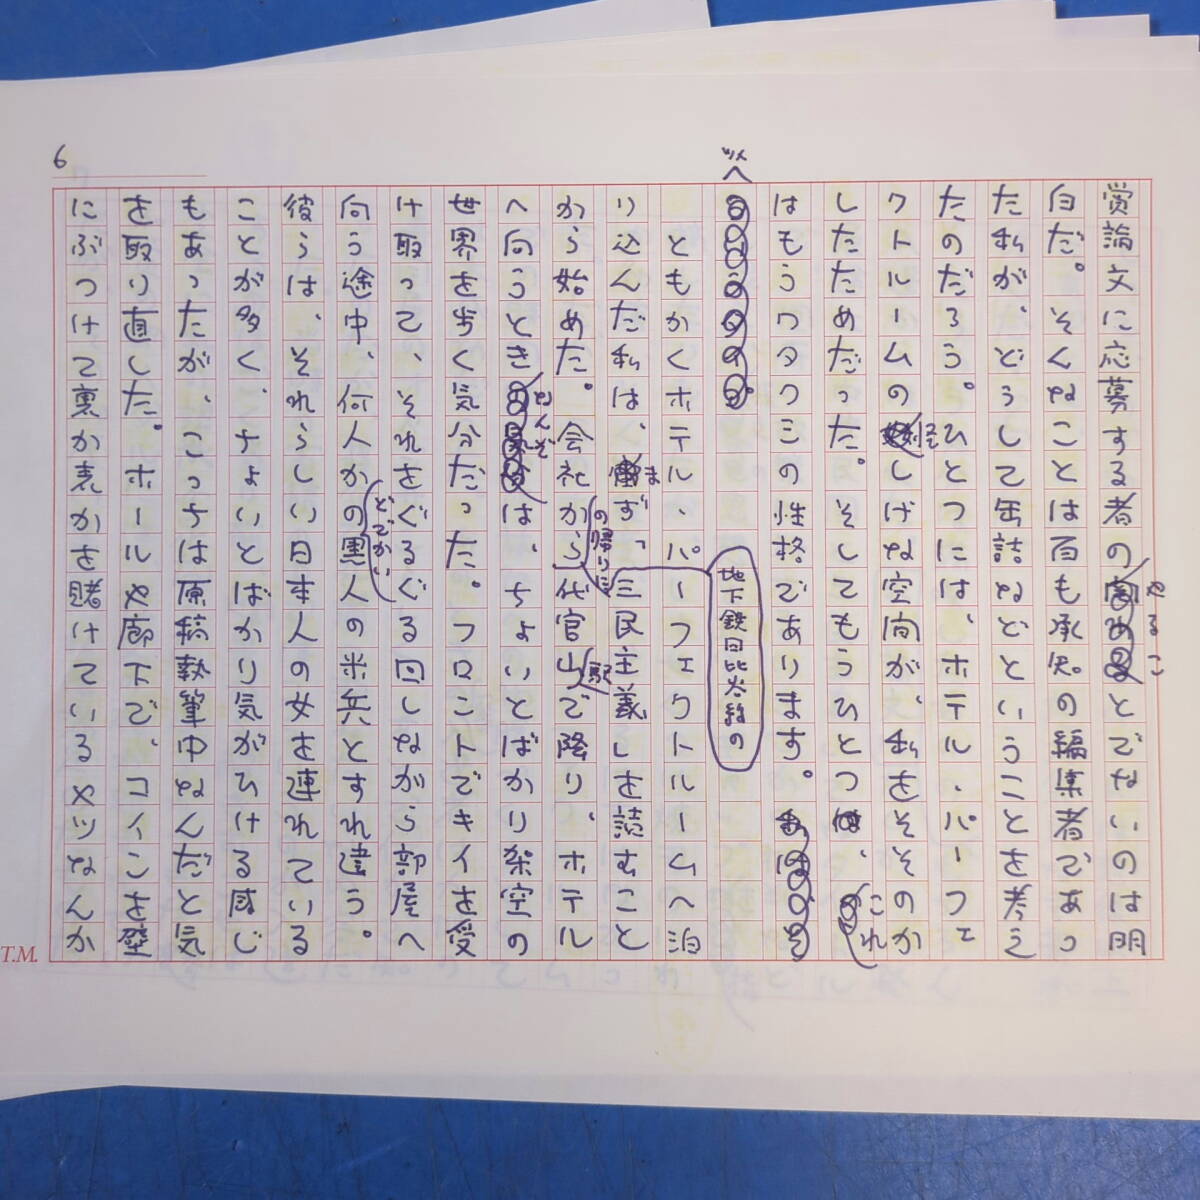 6
賞論文に応募する者のやることでないのは明
白だ。そんなことは百も承知の編集者であっ
た私が、どうして缶詰などということを考え
たのだろう。ひとつには、ホテル・パーフェ
クトルームの怪しげな空間が、私をそそのか
したためだった。そしてもうひとつ、これ
はもうワタクシの性格であります。
ツメ
ともかくホテル・パーフェクトルームへ泊
り込んだ私は、まず、地下鉄日比谷線の三民主義しを詰むこと
から始めた。会社からの帰りに代官山駅で降り、ホテル
へ向うときなんぞは、ちょいとばかり架空の
世界を歩く気分だった。フロントでキイを受
け取って、それをぐるぐる回しながら部屋へ
向う途中、何人かのどでかい黒人の米兵とすれ違う。
彼らは、それらしい日本人の女を連れている
ことが多く、ちょいとばかり気がひける感じ
もあったが、こっちは原稿執筆中なんだと気
を取り直した。ホールや廊下で、コインを壁
にぶつけて裏か表かを賭けているヤツなんか
T.M.